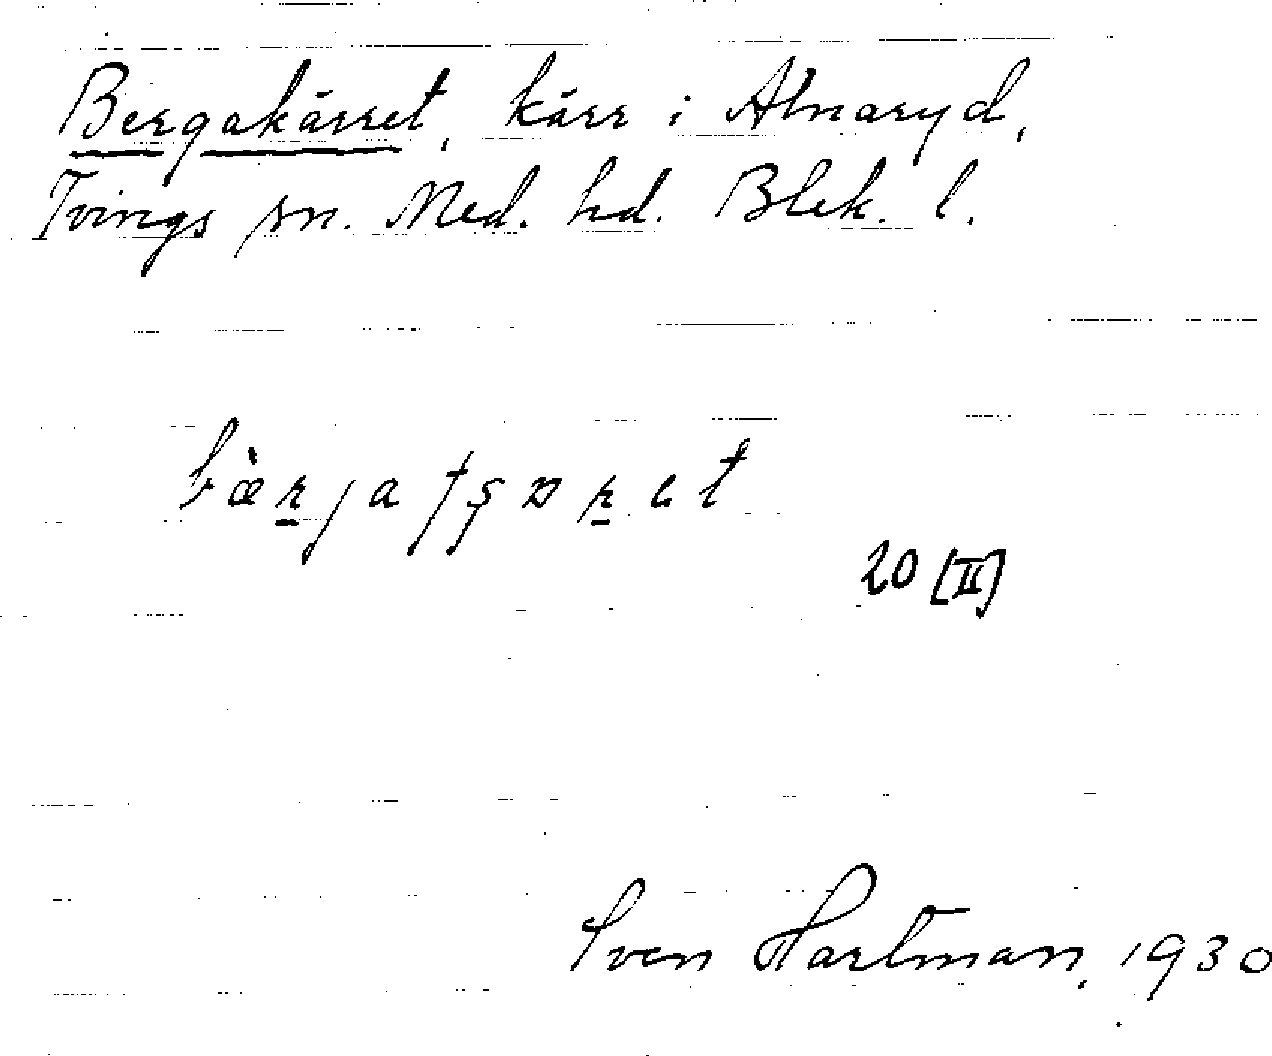 Bergakärret, kärr i Alnaryd,
Tvings sn. Med. hd. Blek. l.
20 [II]
Sven Hartman, 1930